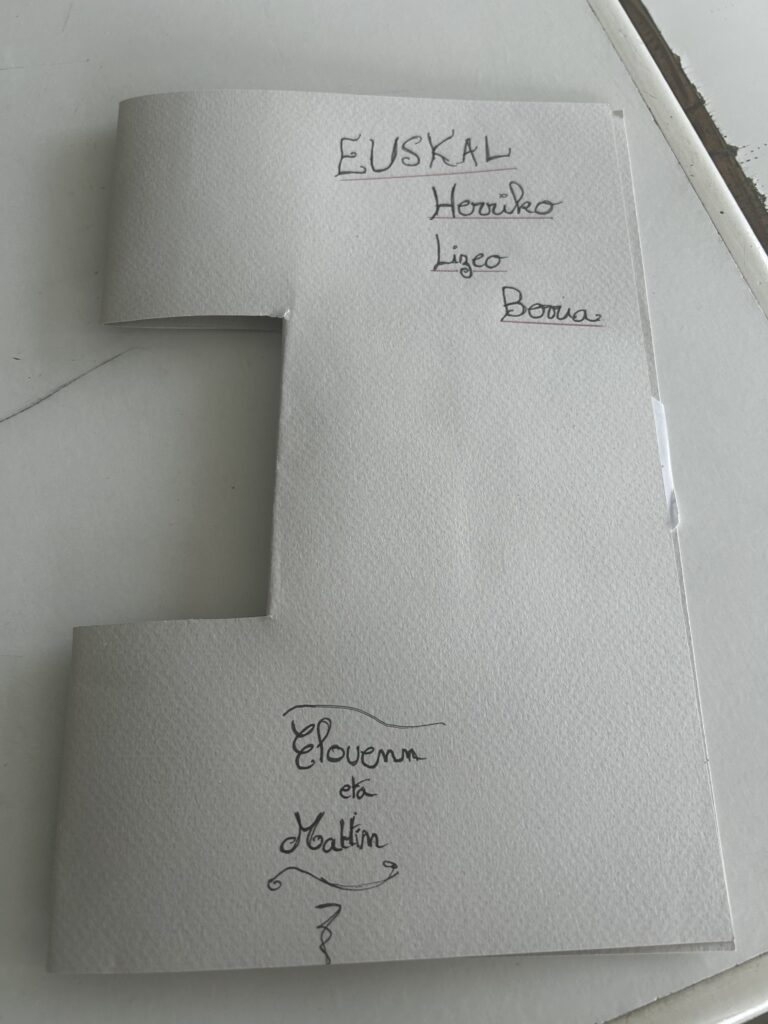 EUSKAL
Herriko
Lizeo
Berria
Elovenn
eta
Mattin